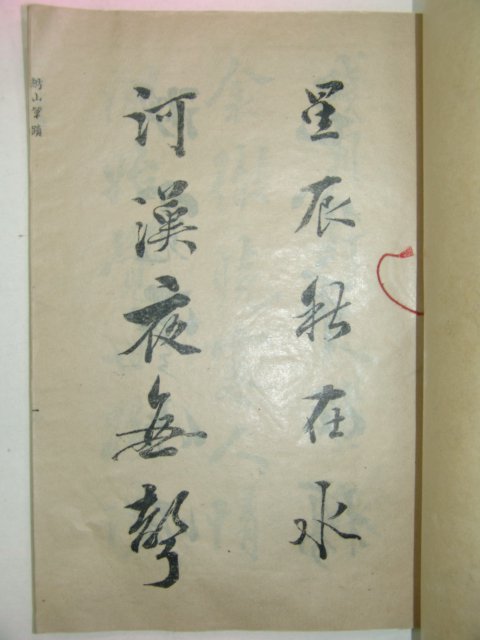 星辰秋在水
河漢夜無聲